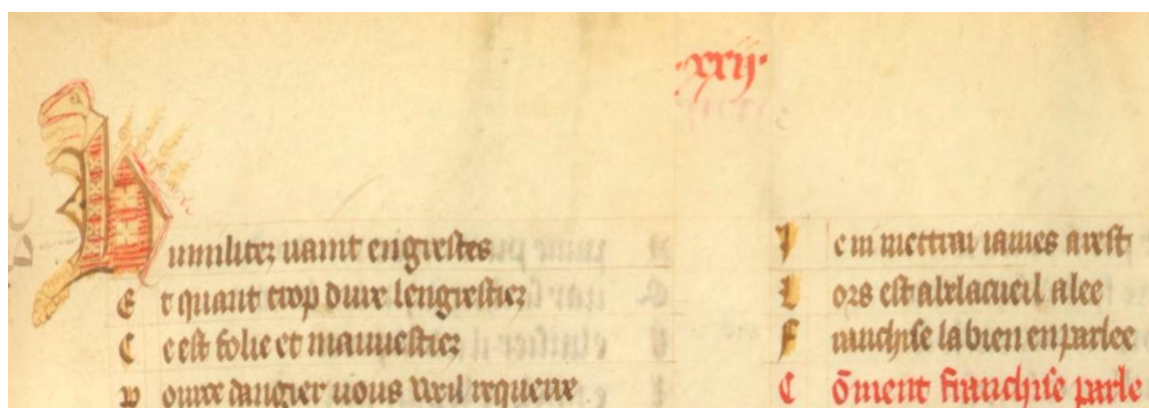 .xxij.
Humilitez uaint engrestes
Et quant trop dure lengrestiez
Ce est folie et mauuestiez
Pource dangier uous vueil requerre
Je ni mettrai iames arest
Lors est a belacueil alee
Franchise la bien en parlee
Cōment franchise parle